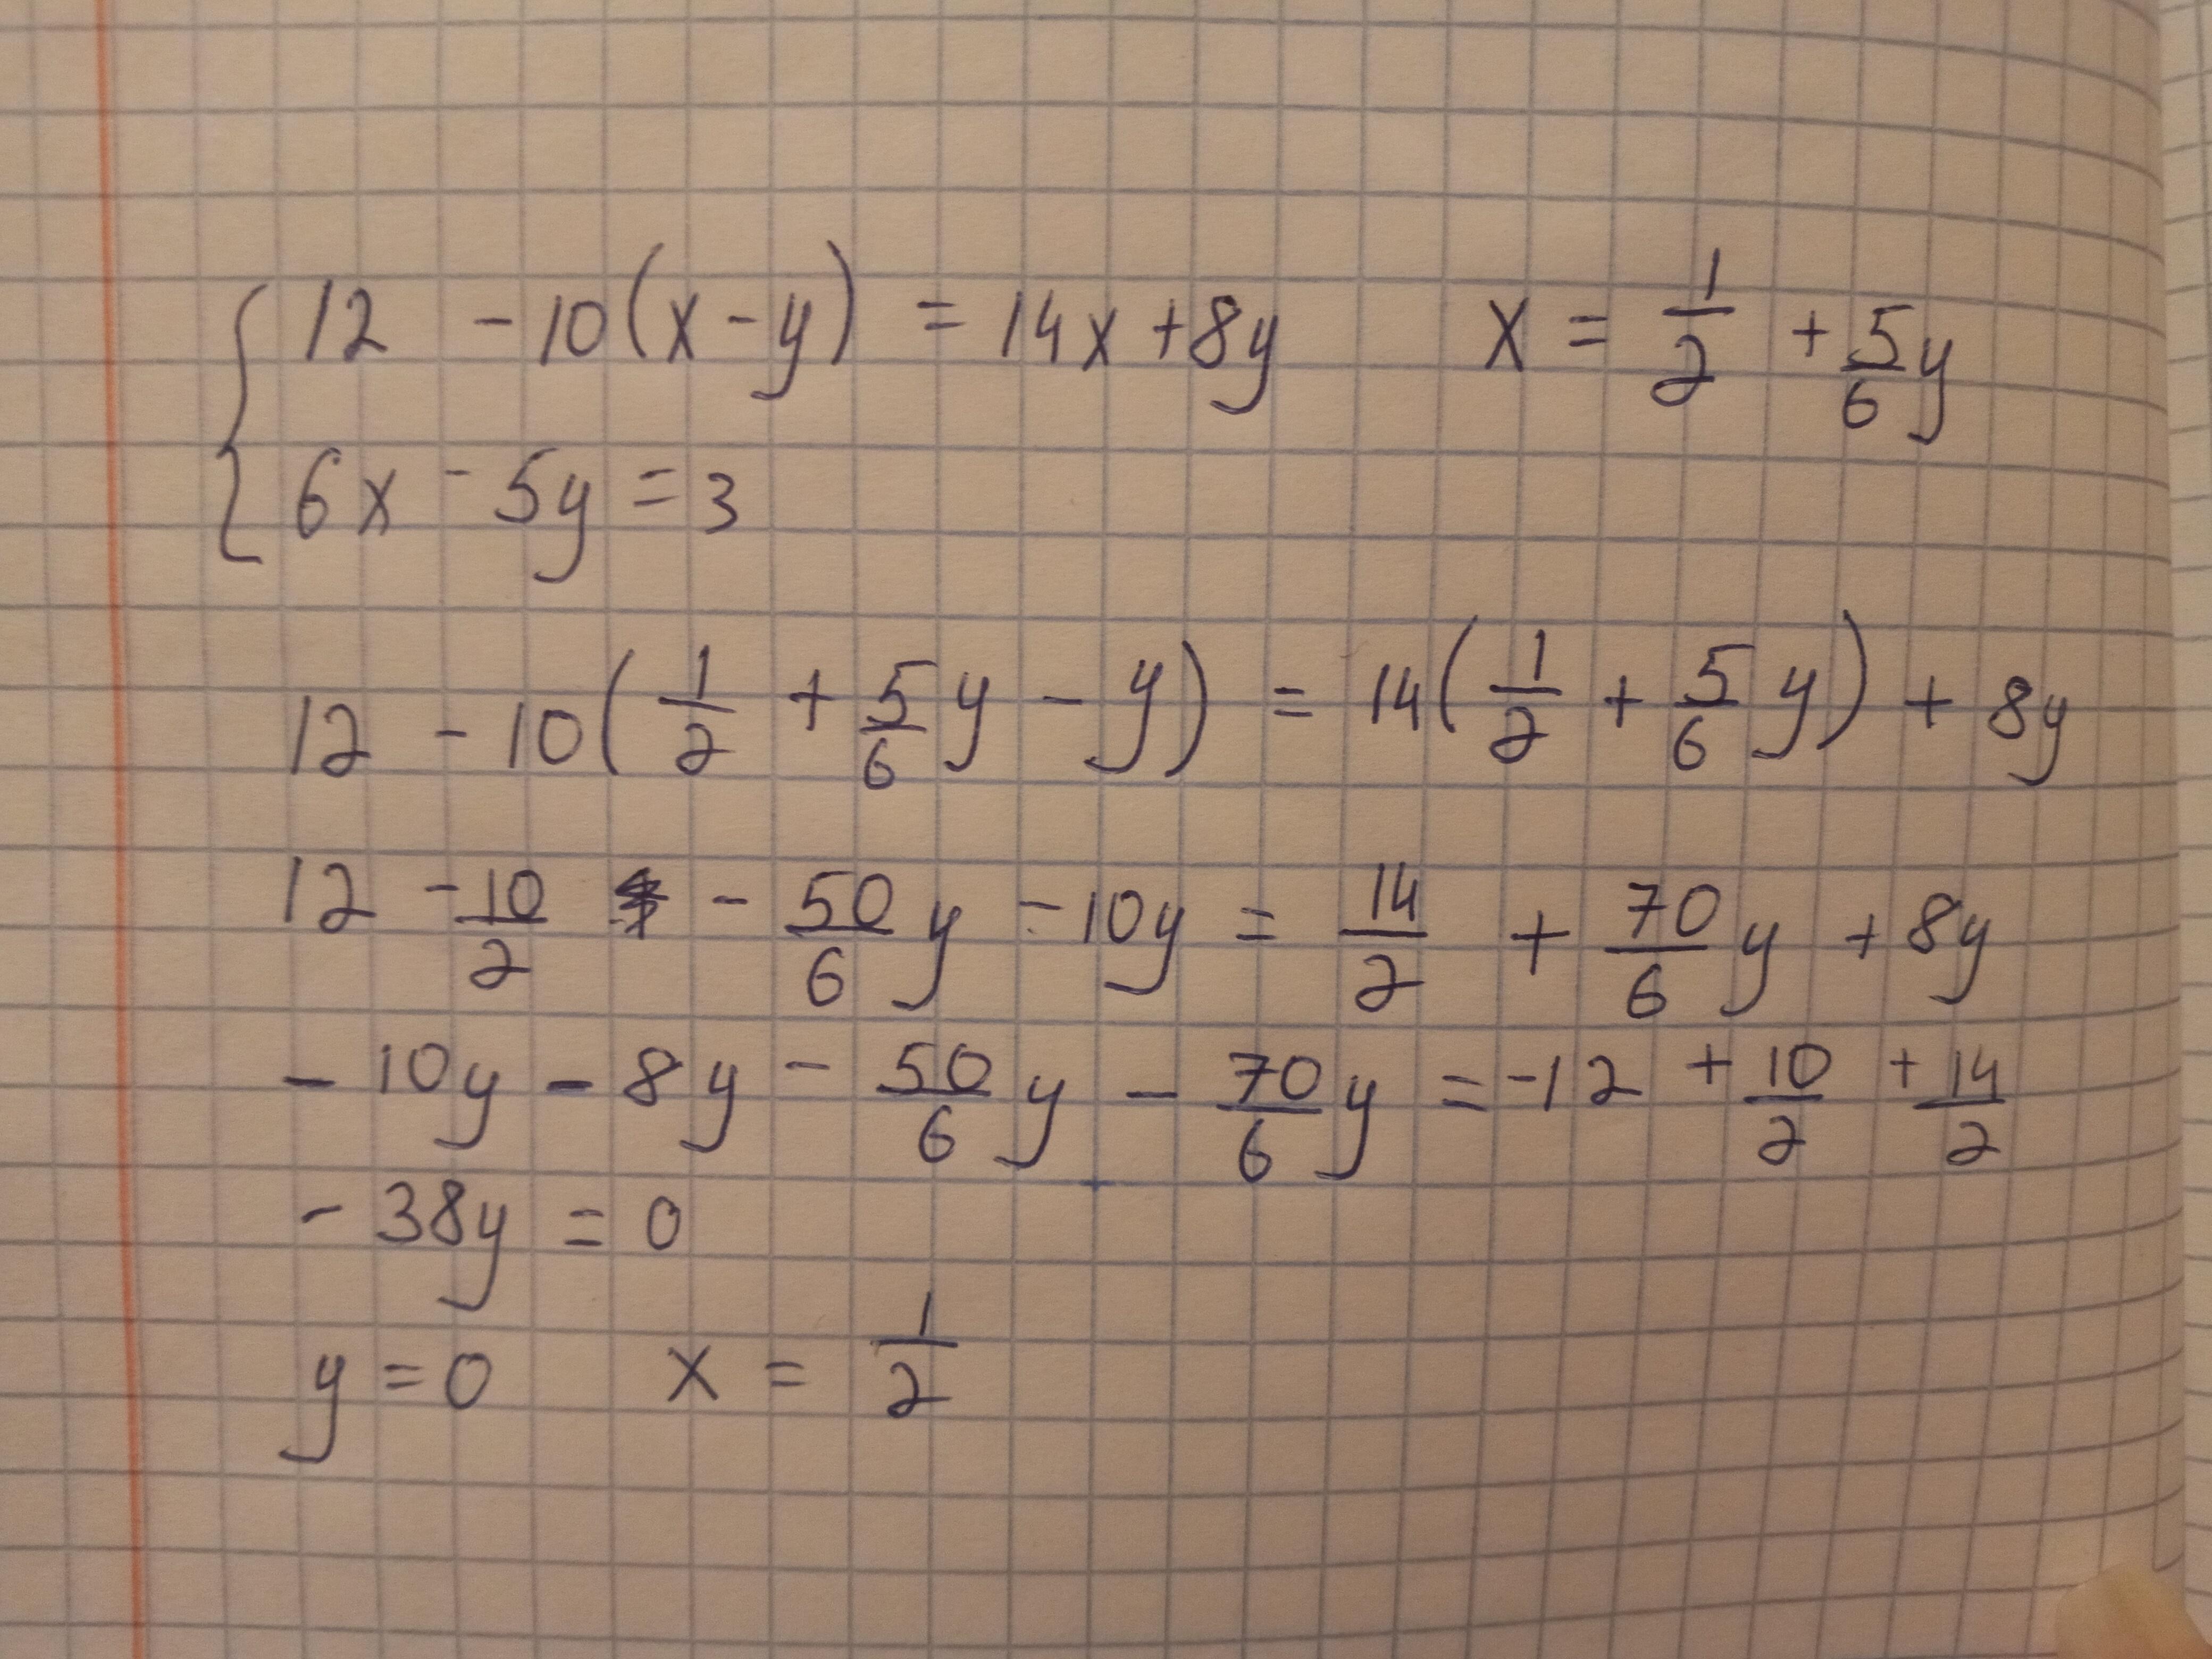 12 - 10(x - y) = 14x + 8y x = 1/2 + 5/6 y
6x - 5y = 3
12 - 10(1/2 + 5/6 y - y) = 14(1/2 + 5/6 y) + 8y
12 - 10/2 - 50/6 y - 10y = 14/2 + 70/6 y + 8y
- 10y - 8y - 50/6 y - 70/6 y = -12 + 10/2 + 14/2
- 38y = 0
y = 0 x = 1/2